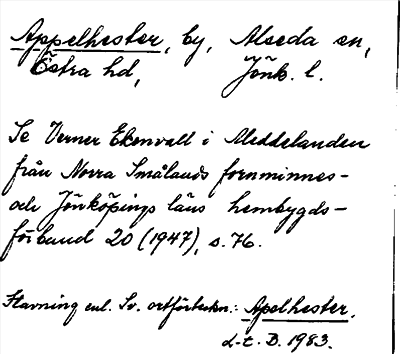 Appelhester, by, Alseda sn,
Östra hd, Jönk. l.
Se Verner Ekenvall i Meddelanden
från Norra Smålands fornminnes-
och Jönköpings läns hembygds-
förbund 20 (1947), s. 76.
Stavning enl. Sv. ortförteckn.: Apelhester.
L-t. B. 1983.